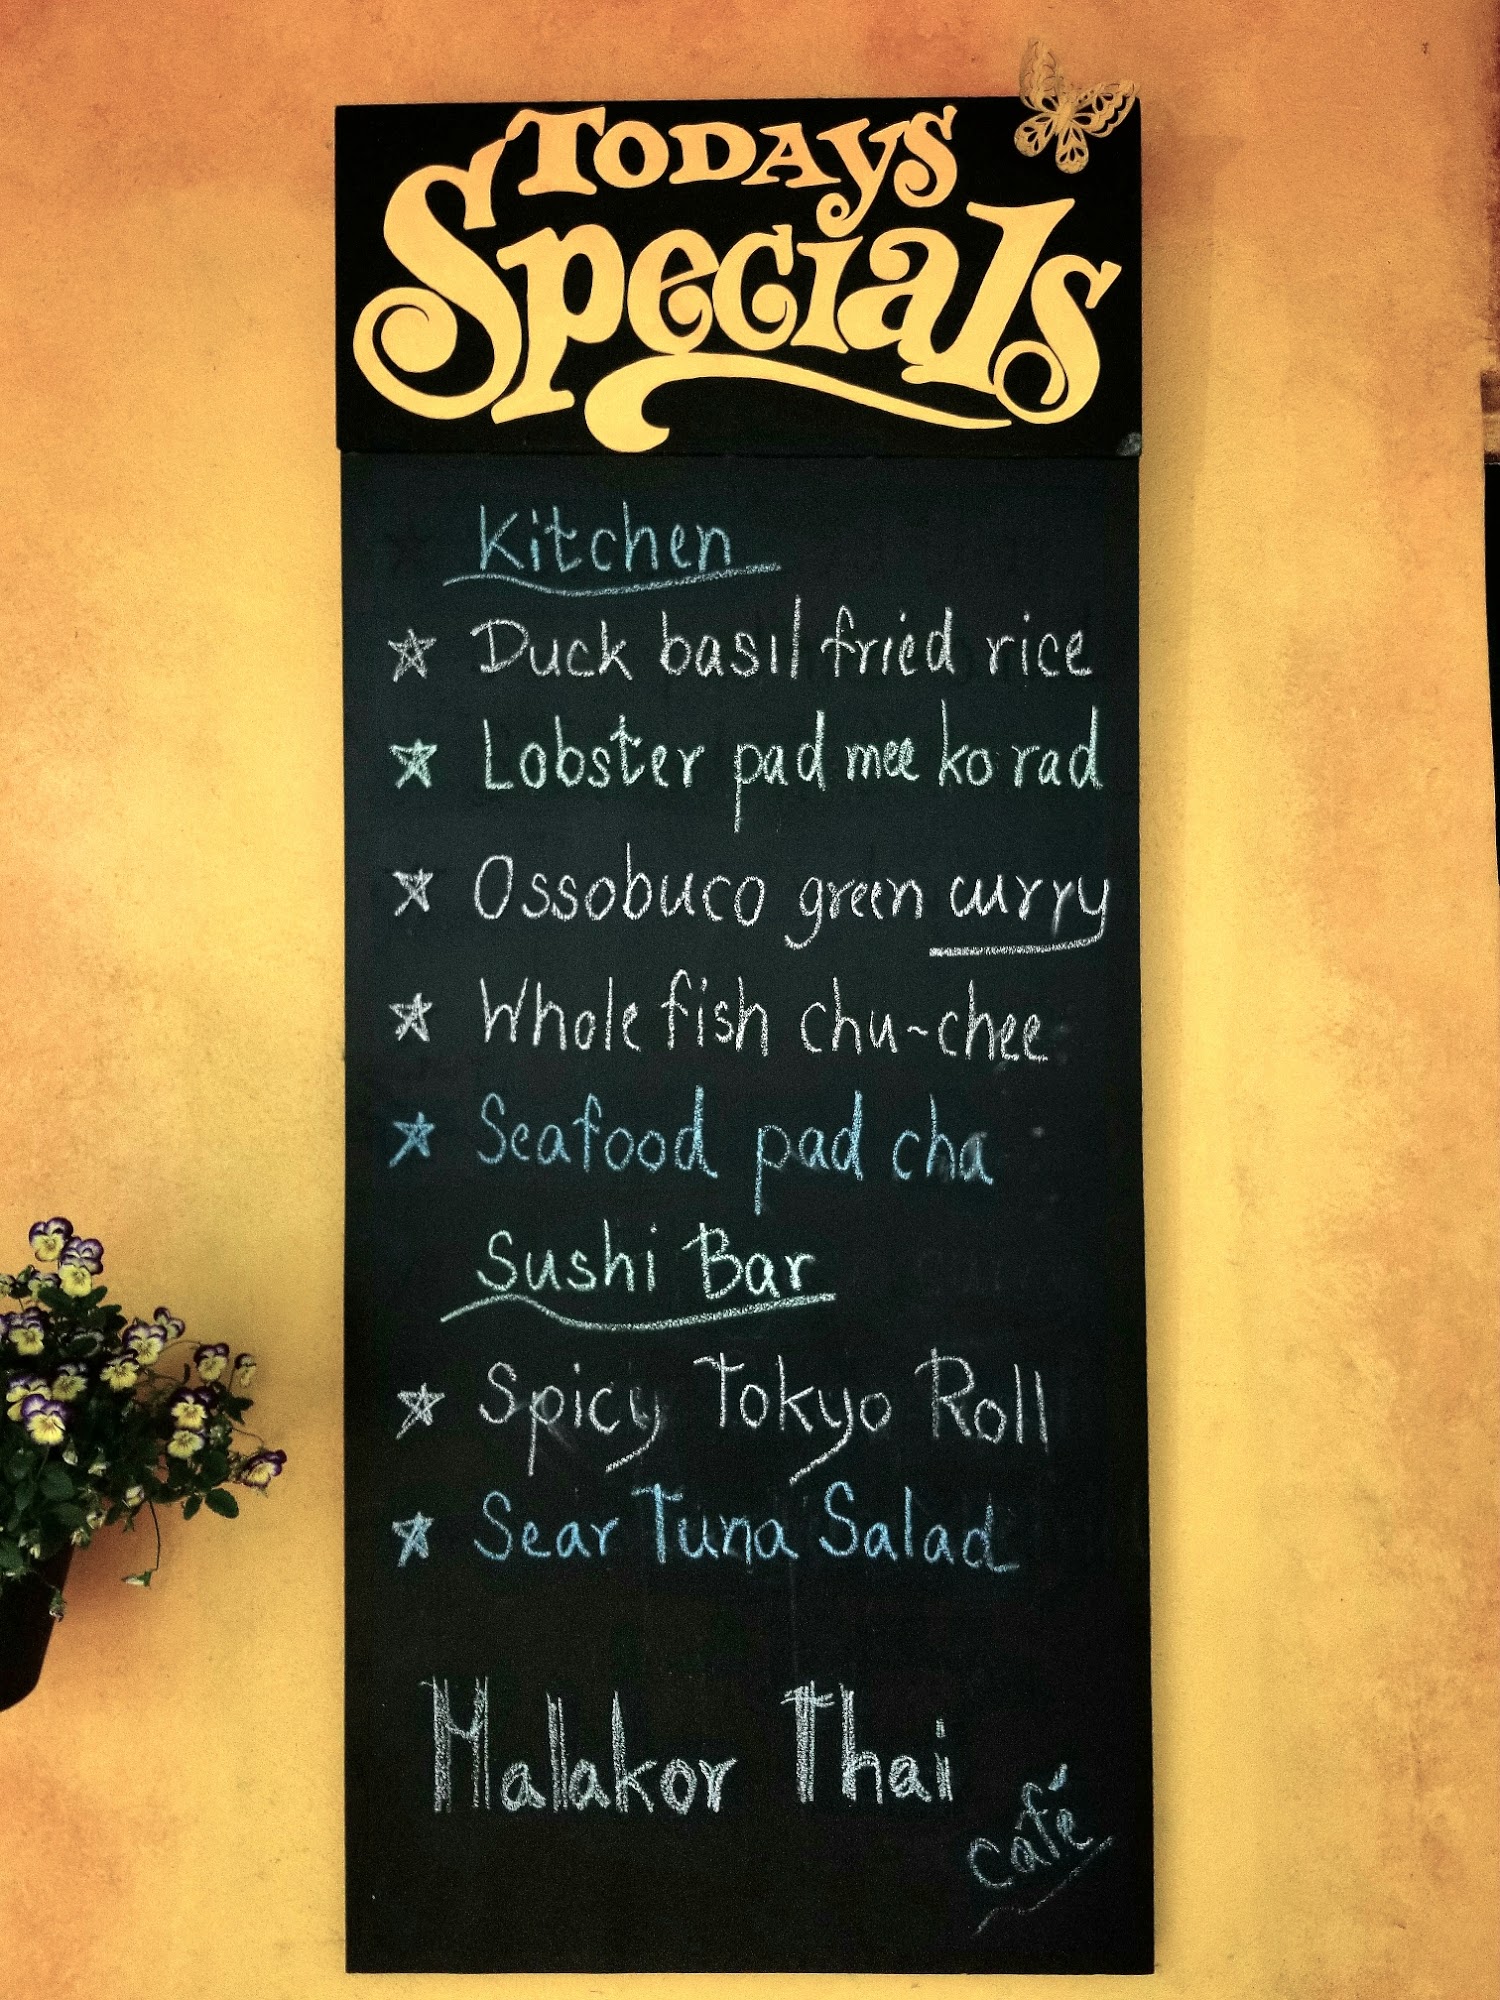 TODAYS
Specials
Kitchen
Duck basil fried rice
Lobster pad mee ko rad
Ossobuco green curry
Whole fish chu-chee
Seafood pad cha
Sushi Bar
Spicy Tokyo Roll
Sear Tuna Salad
Mallakor Thai
café